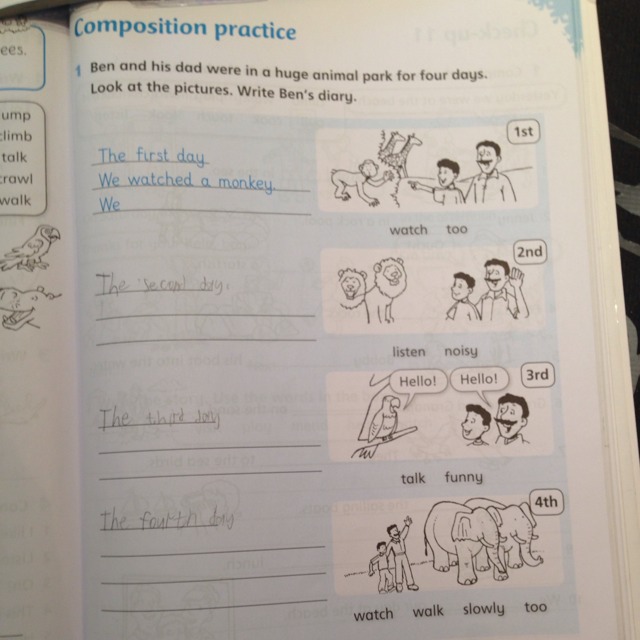 Composition practice
1 Ben and his dad were in a huge animal park for four days.
Look at the pictures. Write Ben's diary.
ees.
ump
climb
talk
crawl
walk
1st
The first day
We watched a monkey
We
watch too
2nd
The second day.
listen noisy
3rd
Hello! Hello!
The third day
talk funny
4th
The fourth day
watch walk slowly too